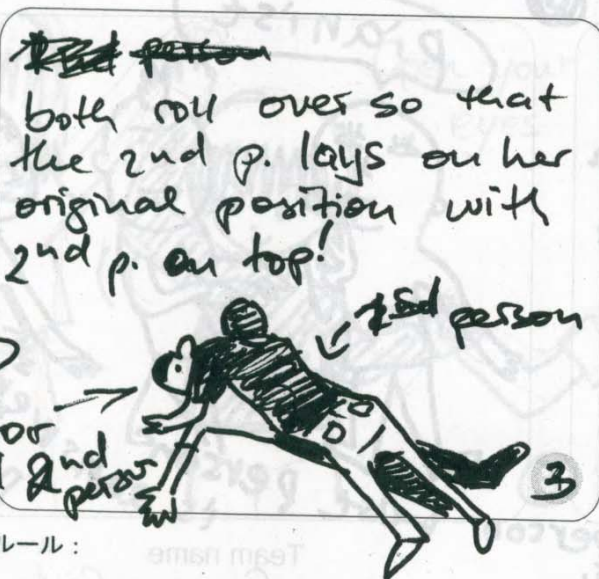 person
both roll over so that
the 2nd p. lays on her
original position with
2nd p. on top!
person
or
2nd
person
3
ルール:
Team name